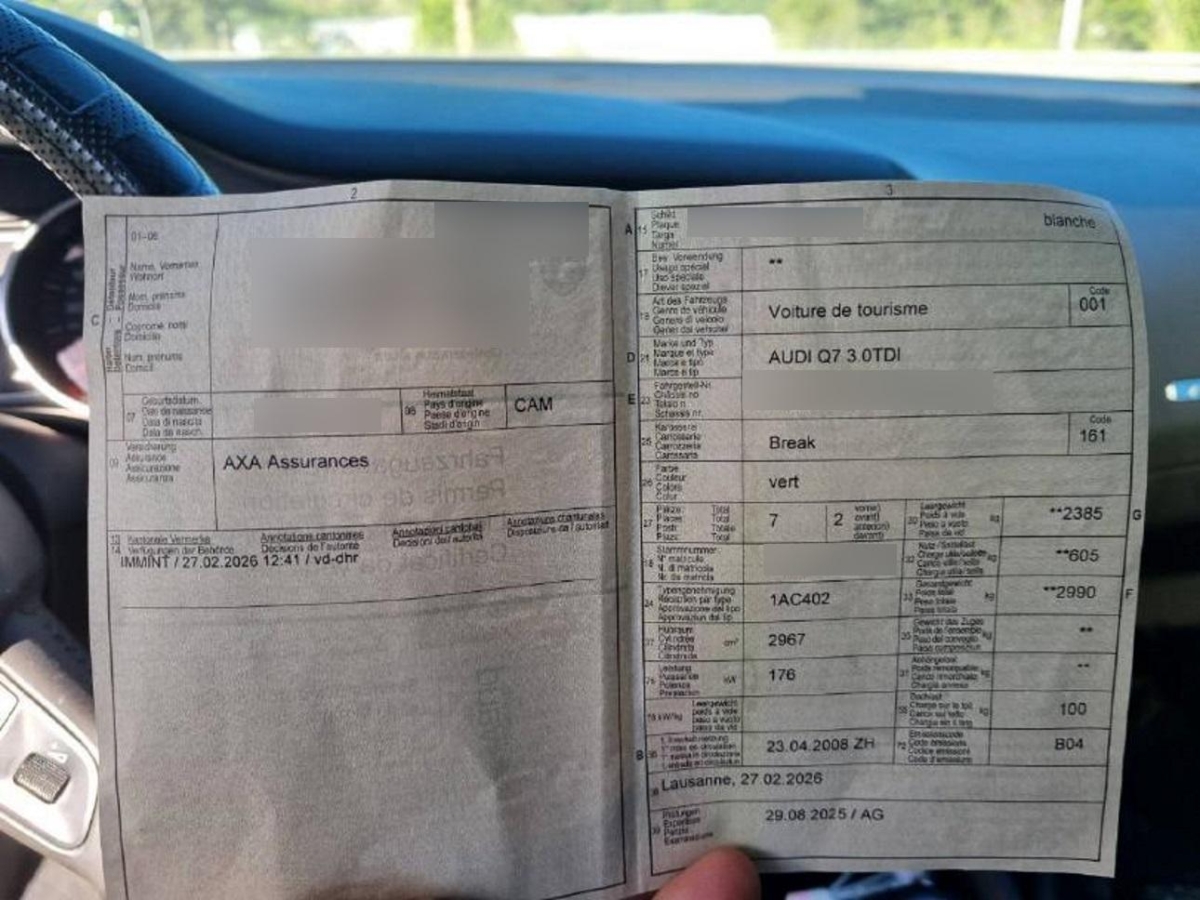 2
01-06
Name, Vornamen
Wohnort
Nom, prénoms
Domicile
Cognome, nomi
Domicilio
Num, prénums
Domicil
C
07
Geburtsdatum
Date de naissance
Data di nascita
Data da nasch.
08
Heimatstaat
Pays d'origine
Paese d'origine
Stadi d'origin
CAM
09
Versicherung
Assurance
Assicurazione
Assicuranza
AXA Assurances
13
14
Kantonale Vermerke
Verfügungen der Behörde
Annotations cantonales
Décisions de l'autorité
Annotazioni cantonali
Decisioni dell'autorità
Annotaziuns chantunalas
Disposiziuns da l'autoritad
IMMINT / 27.02.2026 12:41 / vd-dhr
3
A
15
Schild
Plaque
Targa
Numer
blanche
17
Bes. Verwendung
Usage spécial
Uso speciale
Diever spezial
**
19
Art des Fahrzeugs
Genre de véhicule
Genere di veicolo
Gener dal vehichel
Voiture de tourisme
Code
001
D
21
Marke und Typ
Marque et type
Marca e tipo
Marca e tip
AUDI Q7 3.0TDI
E
23
Fahrgestell-Nr.
Châssis no
Telaio n.
Schassis nr.
25
Karosserie
Carrosserie
Carrozzeria
Carossaria
Break
Code
161
26
Farbe
Couleur
Colore
Colur
vert
27
Plätze: Total
Places: Total
Posti: Totale
Plazs: Total
7
2
vorne)
avant)
anteriori)
davant)
30
Leergewicht
Poids à vide
Peso a vuoto
Paisa da vid
kg
**2385
G
18
Stammnummer
N° matricule
N. di matricola
Nr. da matricla
32
Nutz-/Sattellast
Charge utile/sellette
Carico utile/sella
Chargia utila/sella
kg
**605
24
Typengenehmigung
Réception par type
Approvazione del tipo
Approvaziun dal tip
1AC402
33
Gesamtgewicht
Poids total
Peso totale
Paisa totala
kg
**2990
F
37
Hubraum
Cylindrée
Cilindrata
Cilindrada
cm³
2967
35
Gewicht des Zuges
Poids de l'ensemble
Peso del convoglio
Paisa cumposiziun
kg
**
76
Leistung
Puissance
Potenza
Prestaziun
kW
176
31
Anhängelast
Poids remorquable
Carico rimorchiato
Chargia annexa
kg
**
78 kW/kg
Leergewicht
poids à vide
peso a vuoto
paisa da vid
55
Dachlast
Charge sur le toit
Carico sul tetto
Chargia sin il tetg
kg
100
B
36
1. Inverkehrsetzung
1re mise en circulation
1a messa in circolazione
23.04.2008 ZH
72
Emissionscode
Code émissions
Codice emissioni
Code d'emissiuns
B04
38
Lausanne, 27.02.2026
39
Prüfungen
Expertises
Perizie
Examinaziuns
29.08.2025 / AG